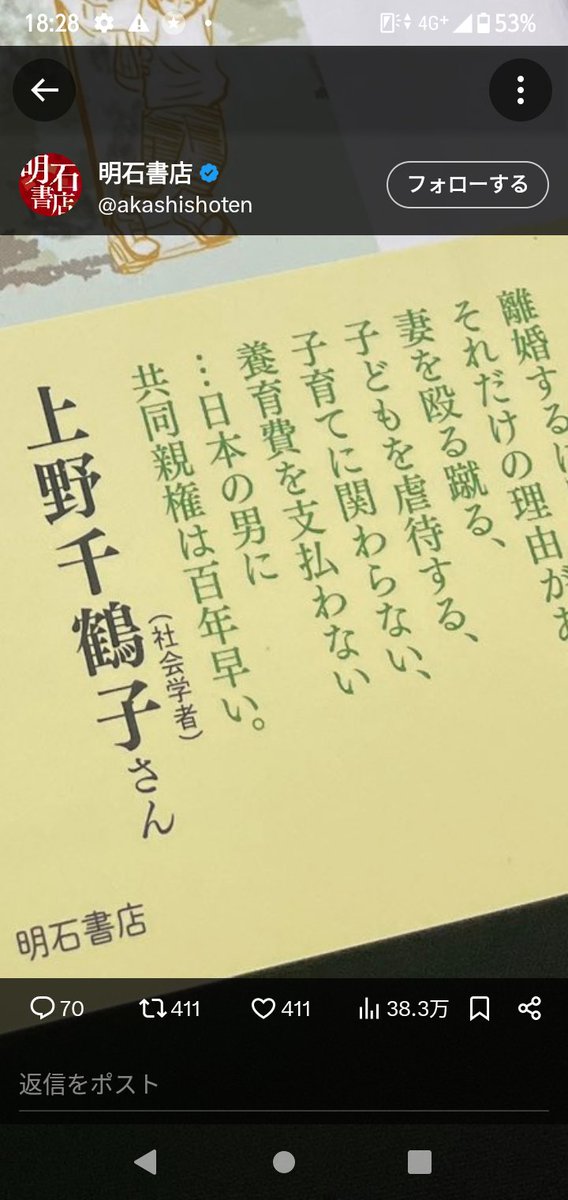 18:28
4G+
53%
明石書店
@akashishoten
フォローする
明石書店
離婚するに
それだけの理由があ
妻を殴る蹴る、
子どもを虐待する、
子育てに関わらない、
養育費を支払わない
…日本の男に
共同親権は百年早い。
上野千鶴子さん
(社会学者)
明石書店
70
411
411
38.3万
返信をポスト